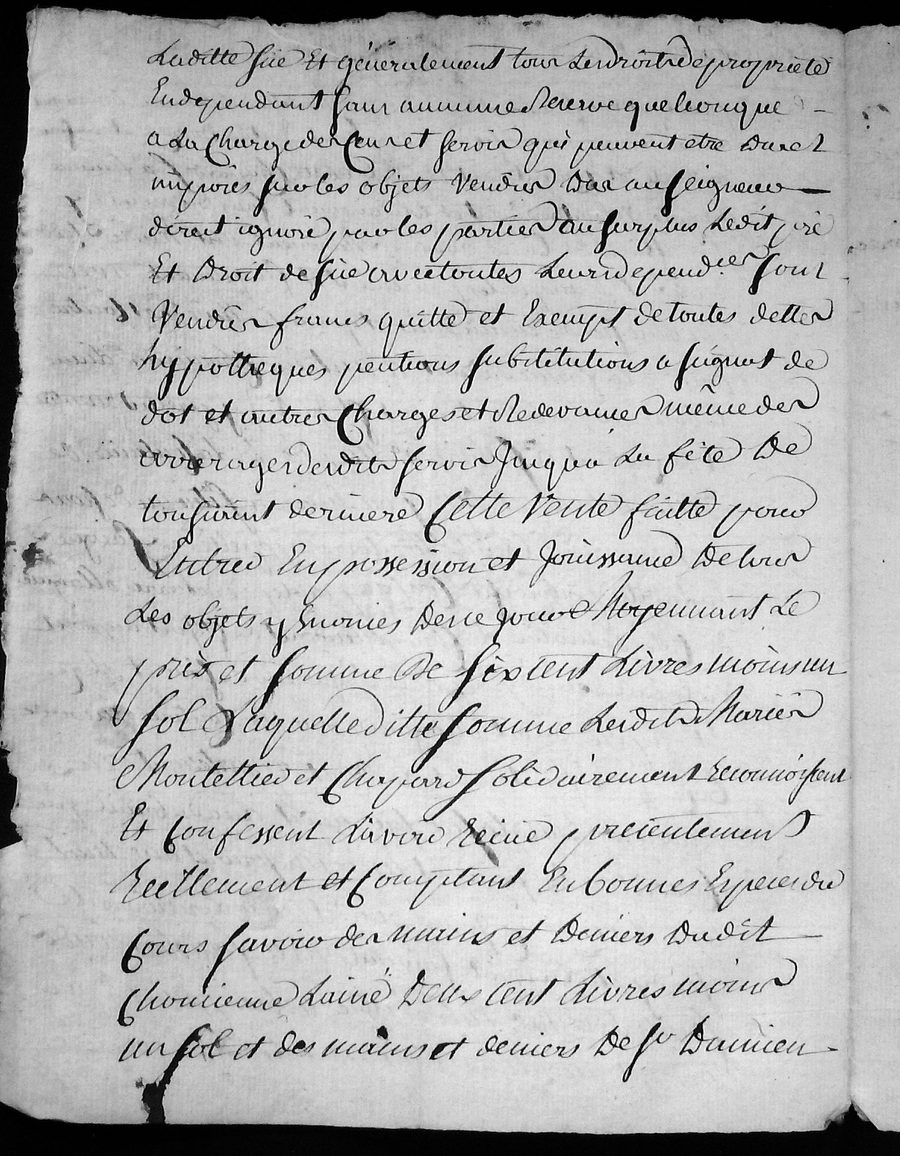 Laditte Süe Et généralement tous Lesdroits de propriété
Endependant Sans aucunne Reserve quelconque
a La Charge des Cens et servis qui peuvent etre Dus et
imposés sur les objets Vendus Dus au Seigneur
direct ignoré par les parties au surplus Ledit pré
Et Droit de Süe avec toutes Leurs depend.ces Sont
Vendus francs quitte et Exempt de toutes dettes
hypottreques pentions substitutions asignat de
dot et autres Charges et Redevances même des
arrerages desdits servis Jusqu'a La fête De
toussaint derniere Cette Vente faitte pour
Entrer En possession et Joüissance De tous
Les objets y Enoncés De ce jour Moyennant Le
prix et somme De Six cent Livres moins un
Sol Laquelle ditte somme Lesdits Mariés
Montellier et Chapard Solidairement reconnoissent
Et Confessent L'avoir Recüe presentement
Reellement et Comptant En bonnes Especes du
Cours savoir des mains et Deniers Dudit
Chomienne Lainé Deux cent Livres moins
un Sol et des mains et deniers De Sr Damien